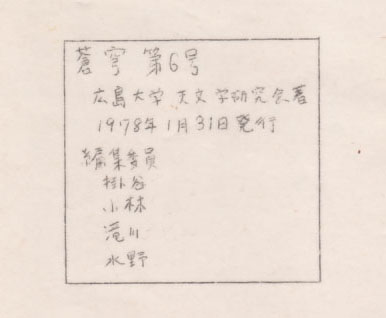 蒼穹 第6号
広島大学 天文学研究会著
1978年1月31日発行
編集委員
掛谷
小林
滝川
水野